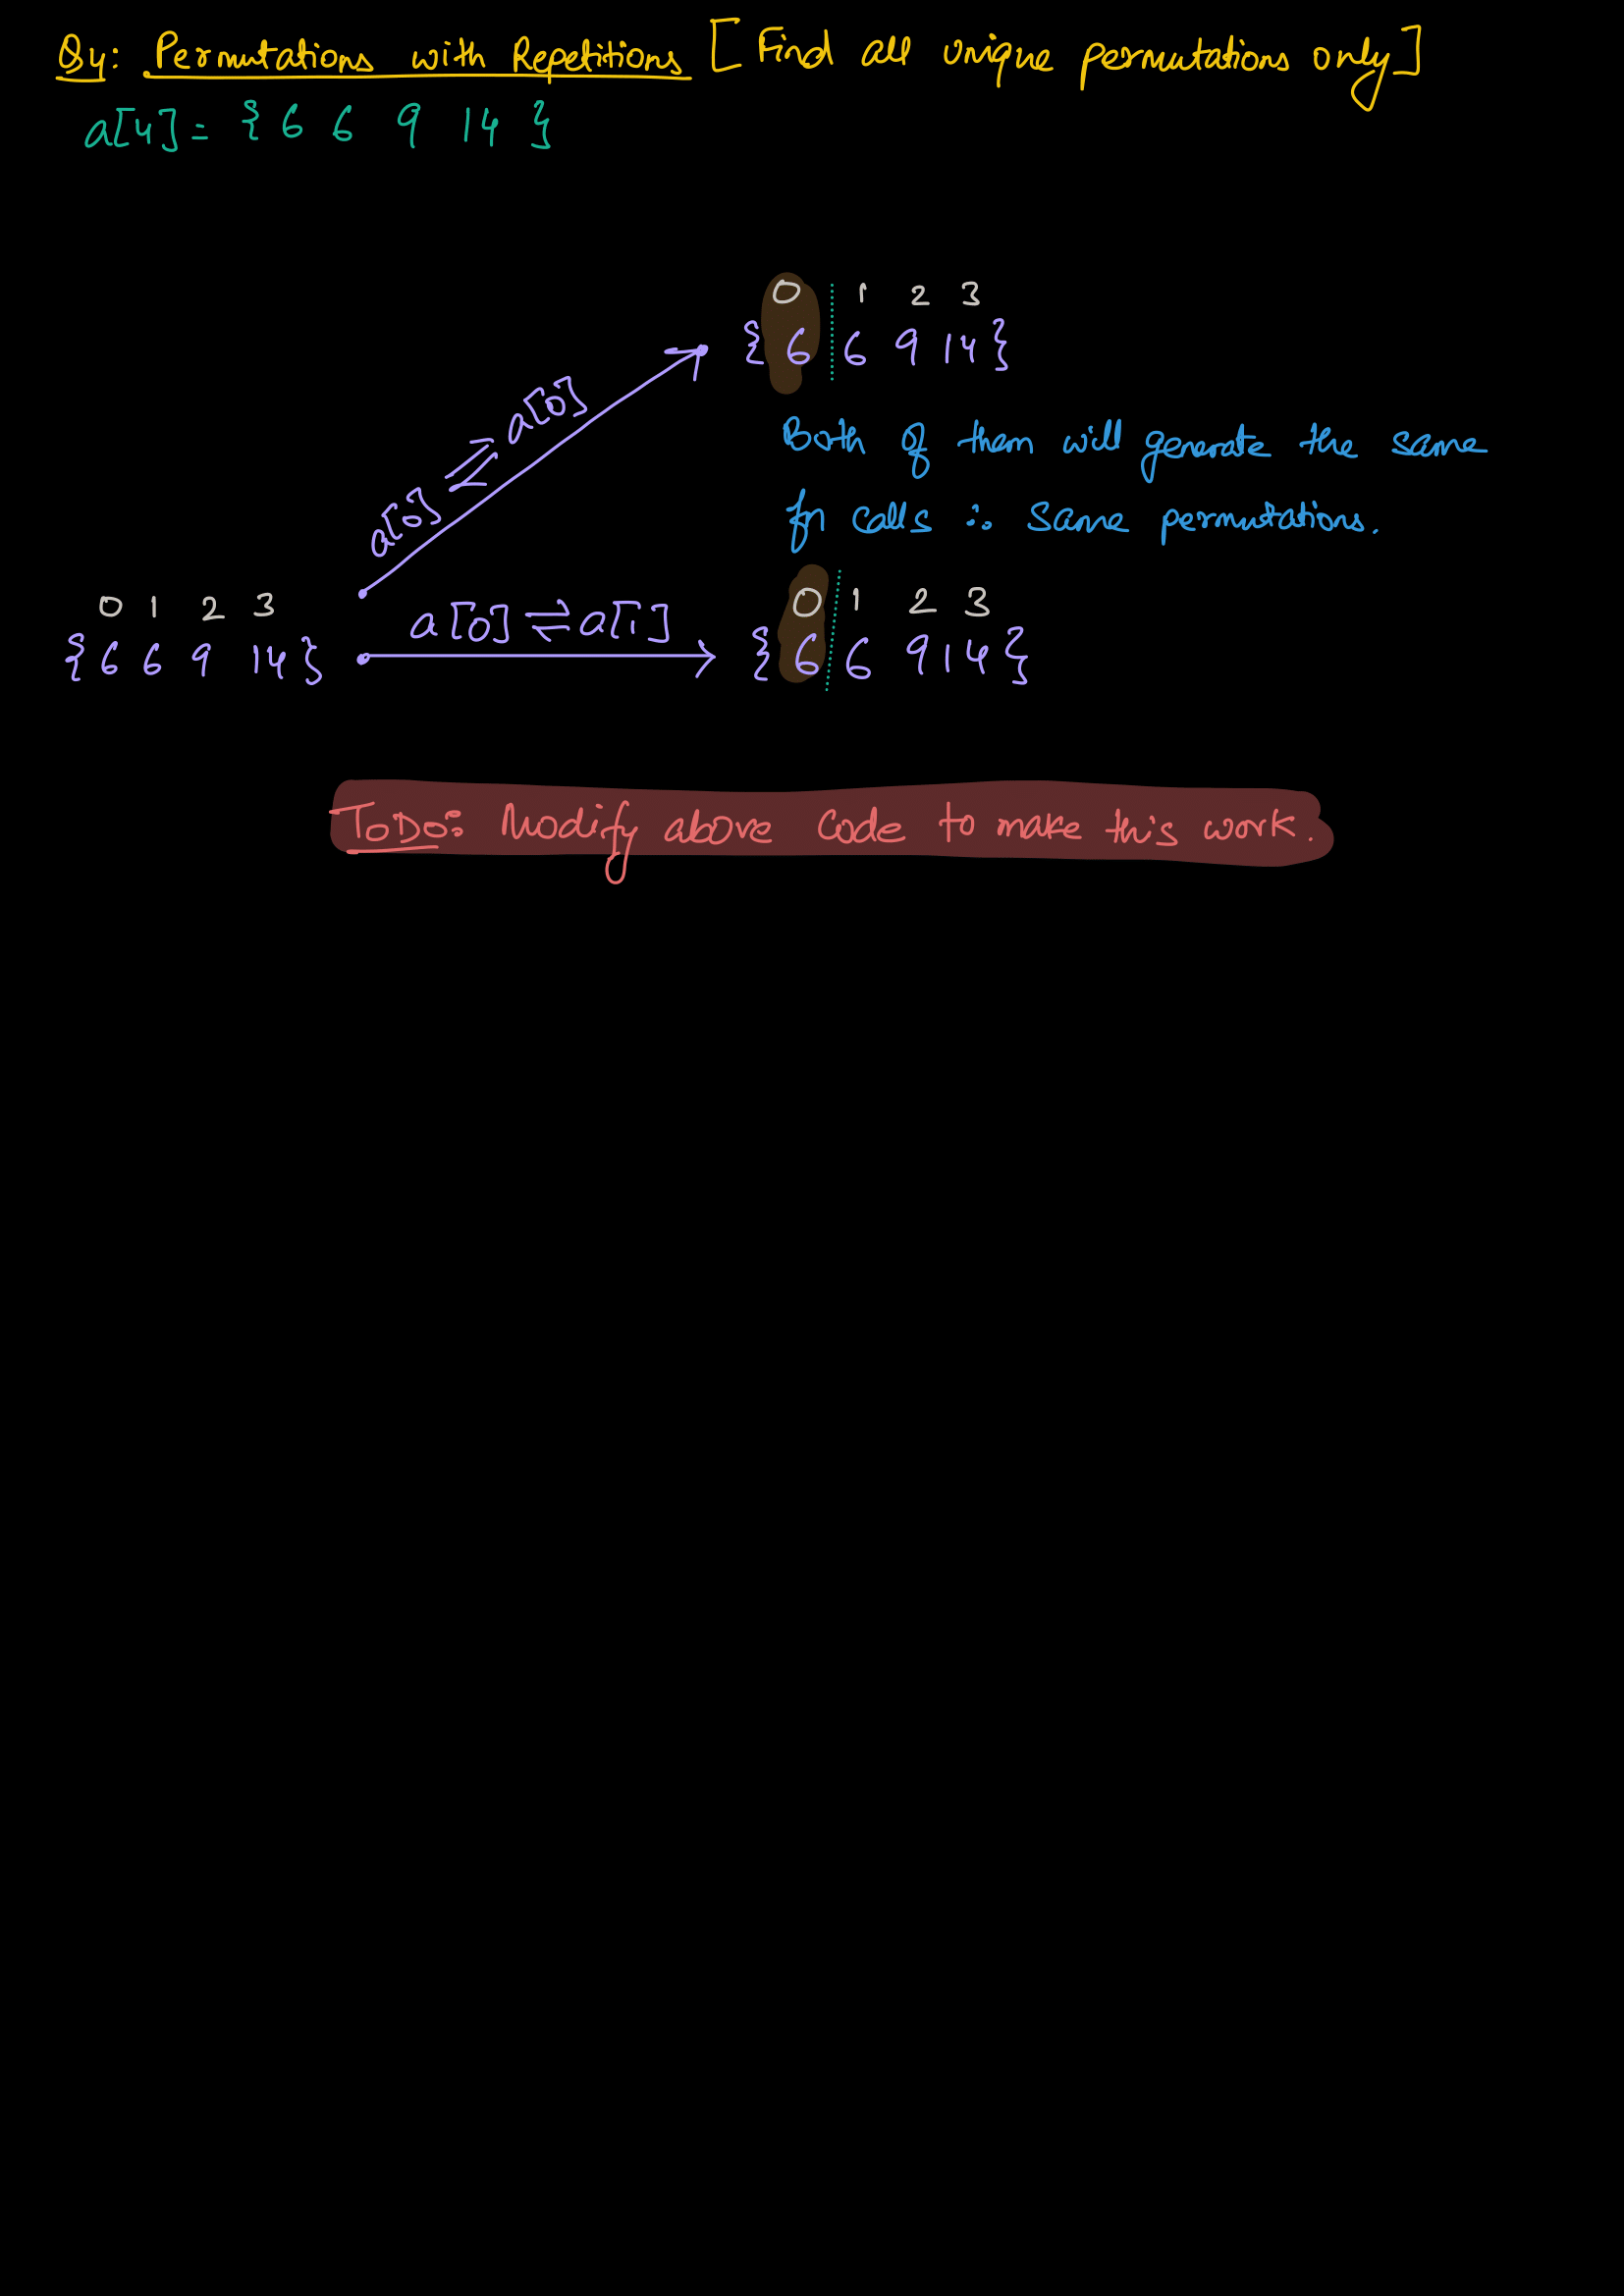 Q4: Permutations with Repetitions [Find all unique permutations only]
a[4] = { 6 6 9 14 }
0 1 2 3
{ 6 6 9 14 }
a[0] ⇌ a[0]
Both of them will generate the same
fn calls ∴ same permutations.
0 1 2 3
{ 6 6 9 14 }
a[0] ⇌ a[1]
0 1 2 3
{ 6 6 9 14 }
ToDo: Modify above code to make this work.